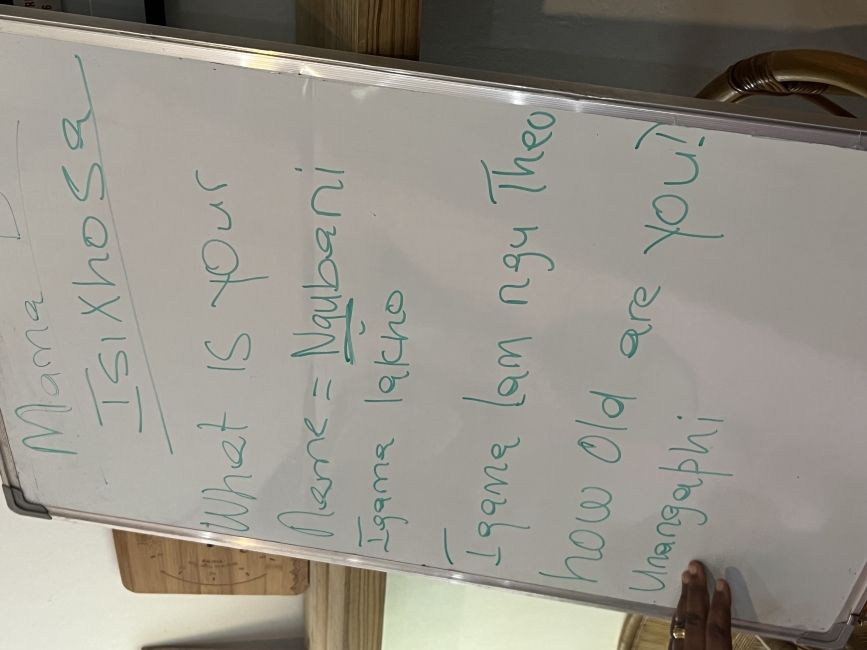 Mama D
IsiXhosa
What is your
Name = Ngubani
Igama lakho
Igama lam ngu Theo
how old are you?
Unangaphi